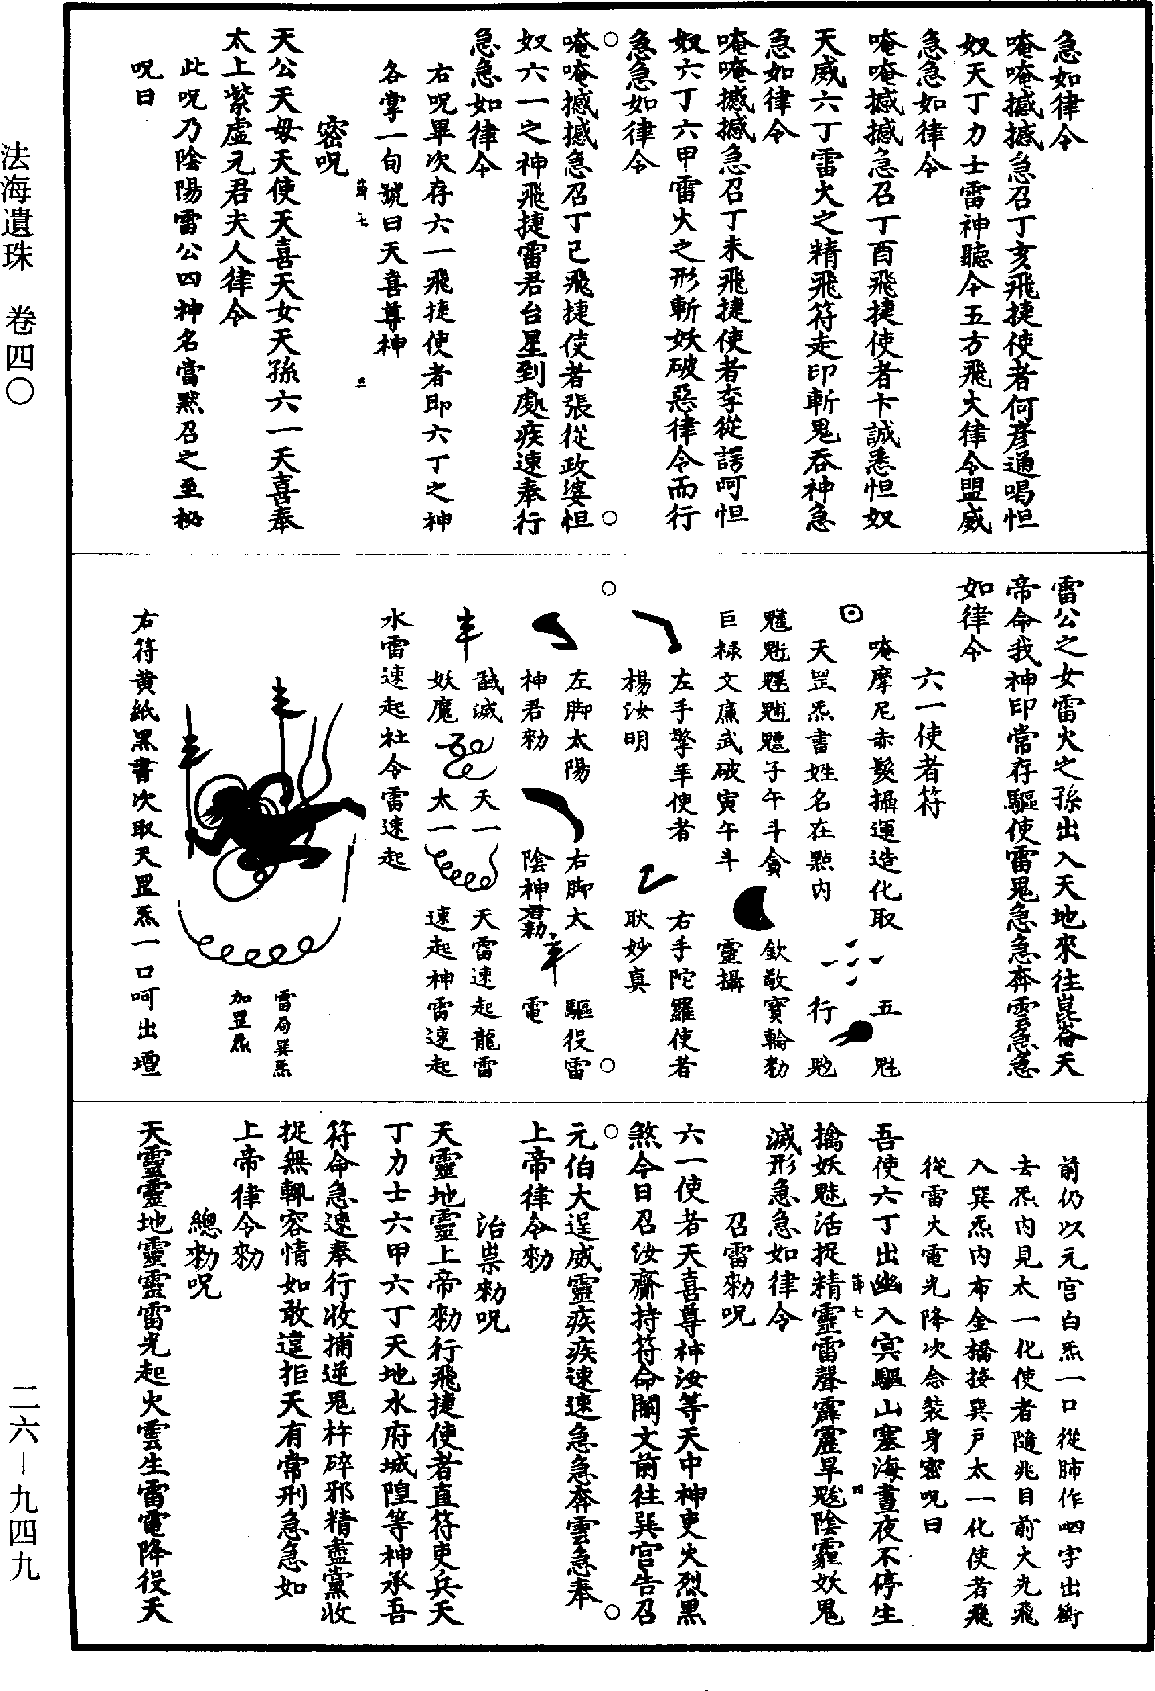 急如律令
唵唵撼撼急召丁亥飛捷使者何彥通喝怛
奴天丁力士雷神聽令五方飛火律令盟威
急急如律令
唵唵撼撼急召丁酉飛捷使者卞誠悉怛奴
天威六丁雷火之精飛符走印斬鬼吞神急
急如律令
唵唵撼撼急召丁未飛捷使者李從諤呵怛
奴六丁六甲雷火之形斬妖破惡律令而行
急急如律令
唵唵撼撼急召丁巳飛捷使者張從政婆怛
奴六一之神飛捷雷君台星到處疾速奉行
急急如律令
右呪畢次存六一飛捷使者即六丁之神
各掌一旬號曰天喜尊神
密呪
天公天母天使天喜天女天孫六一天喜奉
太上紫虛元君夫人律令
此呪乃陰陽雷公四神名當默召之至祕
呪曰
雷公之女雷火之孫出入天地來往崑崙天
帝命我神印常存驅使雷鬼急急奔雲急急
如律令
六一使者符
唵摩尼赤髮攝運造化取 五 魁
天罡炁書姓名在點內 行
子午斗貪 欽敬寶輪勑
巨祿文廉武破寅午斗 靈攝
左手擎羊使者 右手陀羅使者
楊汝明 耿妙真
左脚太陽 右脚太 驅役雷
神君勑 陰神君勑 電
馘滅 天一 天雷速起龍雷
妖魔 太一 速起神雷速起
水雷速起社令雷速起
雷局巽炁
加罡炁
右符黄紙黑書次取天罡炁一口呵出壇
前仍以元宮白炁一口從肺作呬字出衝
去炁內見太一化使者隨兆目前大光飛
入巽炁內布金橋接巽戶太一化使者飛
從雷火電光降次念裝身密呪曰
吾使六丁出幽入冥驅山塞海晝夜不停生
擒妖魅活捉精靈雷聲霹靂旱魃陰霾妖鬼
滅形急急如律令
召雷勑呪
六一使者天喜尊神汝等天中神吏火烈黑
煞今日召汝齎持符命關文前往巽宮告召
元伯大逞威靈疾疾速速急急奔雲急奉
上帝律令勑
治祟勑呪
天靈地靈上帝勑行飛捷使者直符吏兵天
丁力士六甲六丁天地水府城隍等神承吾
符命急速奉行收捕逆鬼杵碎邪精盡黨收
捉無輒容情如敢違拒天有常刑急急如
上帝律令勑
總勑呪
天靈靈地靈靈雷光起火雲生雷電降役天
法海遺珠 卷四〇
二六－九四九